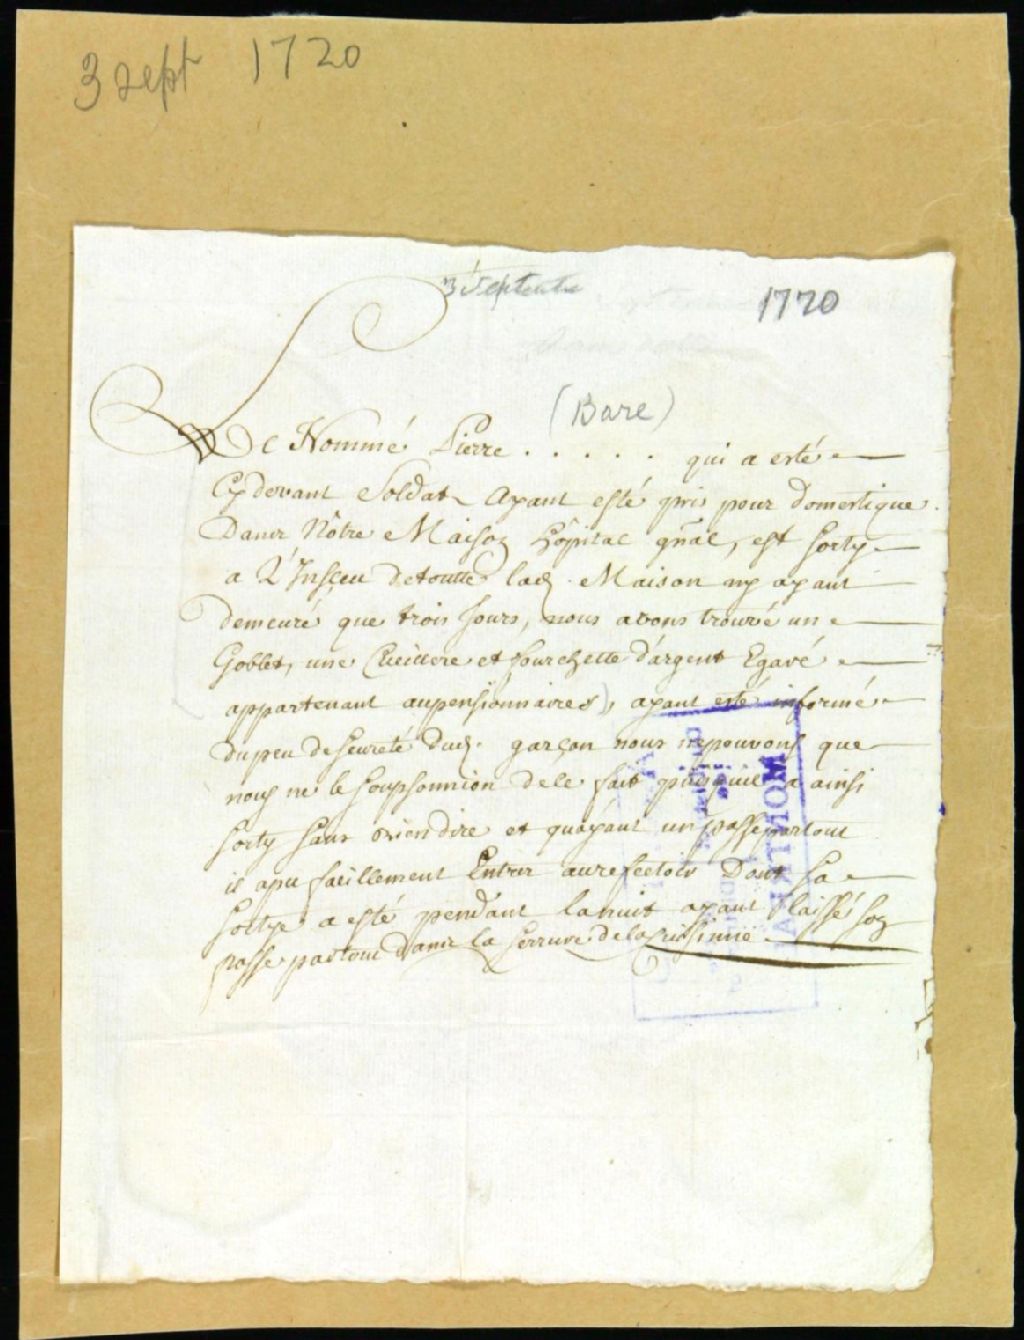 3 sept 1720
3 Septembre 1720
(Bare)
Le Nommé Pierre . . . . . qui a esté
Cydevant Soldat Ayant esté pris pour Domestique
Dans Nôtre Maison hôpital gñal, est sorty
a L'Insceu detoutte lad. Maison ny ayant
demeuré que trois Jours, nous avons trouvé une
Goblet, une Cueillere et fourchette d'argent Egaré
appartenant aupensionnaires), ayant esté informé
Dupeu deseureté dud. garçon nous nepouvons que
nous ne le soupsonnion dele fait puisquil a ainsi
sorty sans rien dire et quayant un passepartout
il apu facillement Entrer aurefectoir Dont sa
sortye a esté pendant lanuit ayant laissé son
passe partout dans la serrure delacuissinne
MONTREAL